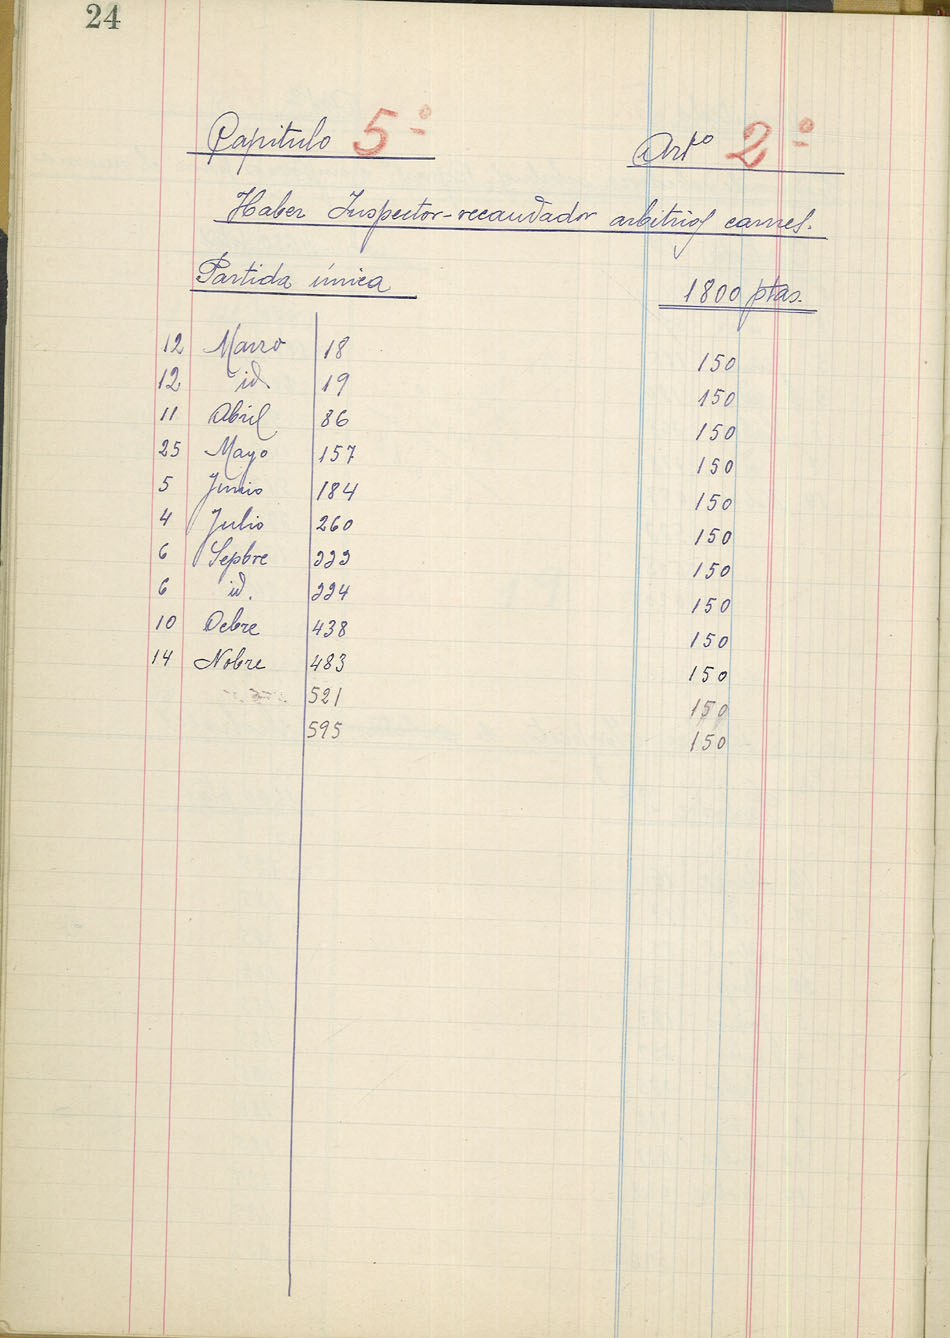 24
Capitulo 5º Artº 2º
Haber Inspector-recaudador arbitrios carnes.
Partida única 1800 ptas.
12 Marzo 18 150
12 id 19 150
11 Abril 86 150
25 Mayo 157 150
5 Junio 184 150
4 Julio 260 150
6 Sepbre 223 150
6 id. 224 150
10 Ocbre 438 150
14 Nobre 483 150
521 150
595 150